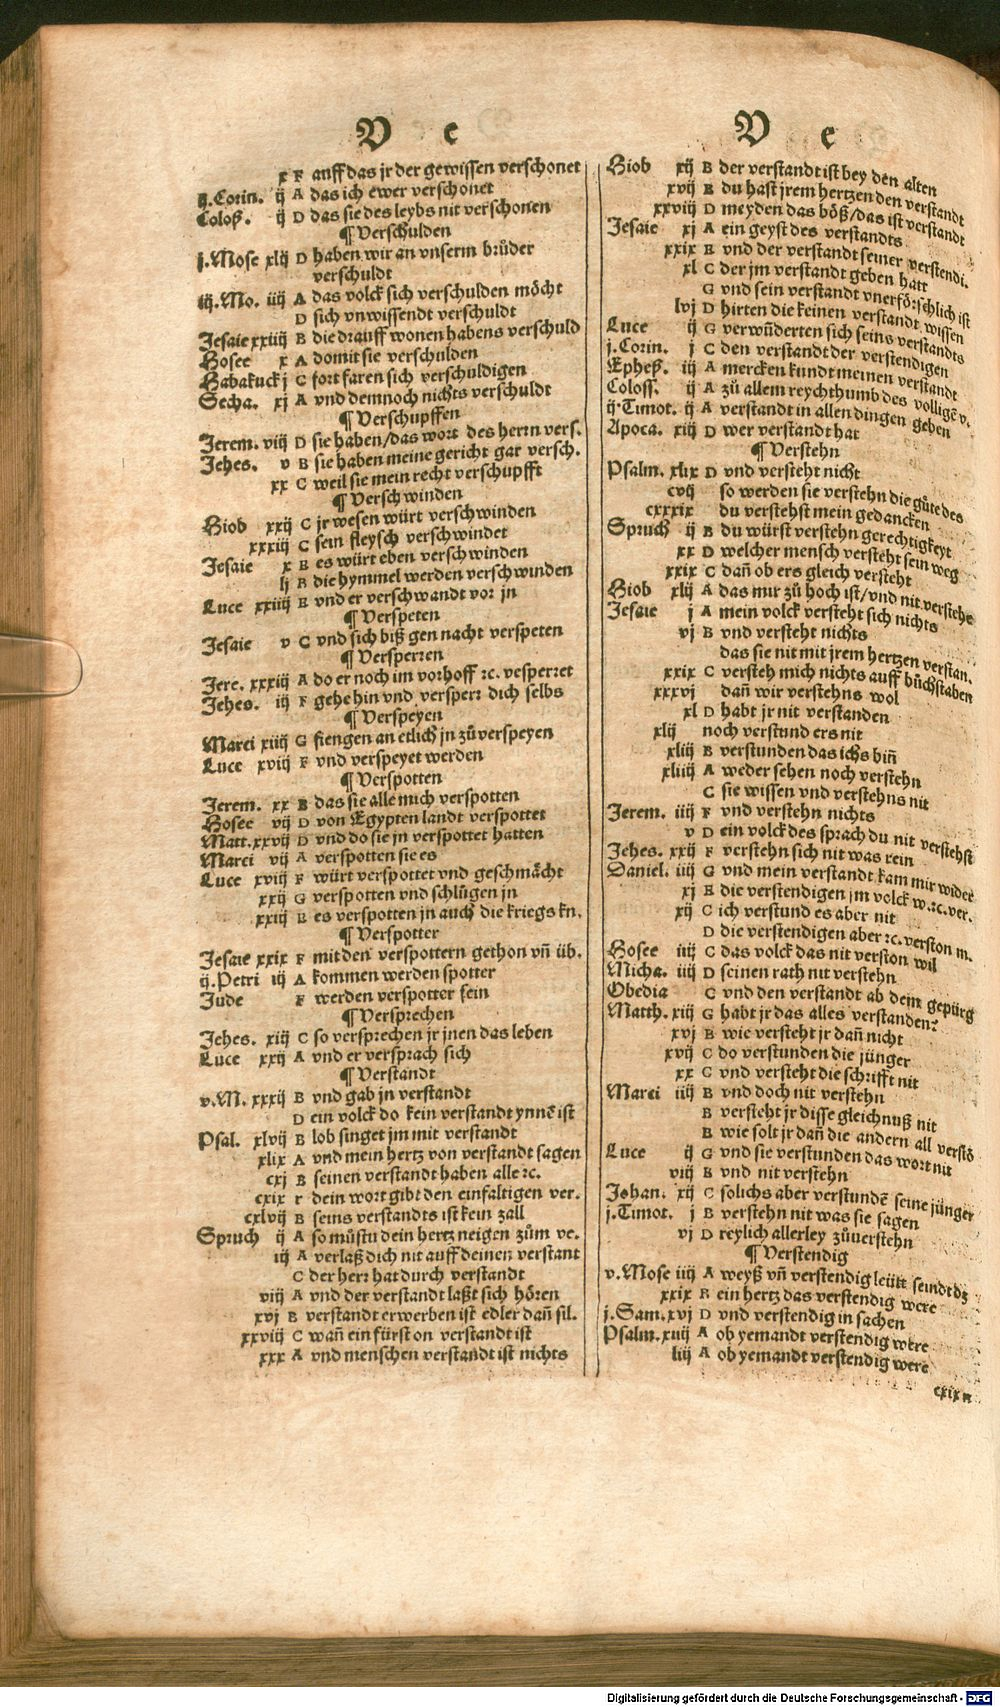 V e
x F auff das jr der gewissen verschonet
ij.Corin. ij A das ich ewer verschonet
Coloß. ij D das sie des leybs nit verschonen
¶ Verschulden
j.Mose xlij D haben wir an vnserm brüder
verschuldt
iij.Mo. iiij A das volck sich verschulden möcht
D sich vnwissendt verschuldt
Jesaie xxiiij B die drauff wonen habens verschuld
Hosee x A domit sie verschulden
Habakuck j C fort faren sich verschuldigen
Secha. xj A vnd demnoch nichts verschuldt
¶ Verschupffen
Jerem. viij D sie haben/das wort des herrn vers.
Jehes. v B sie haben meine gericht gar versch.
xx C weil sie mein recht verschupfft
¶ Verschwinden
Hiob xxij C jr wesen würt verschwinden
xxxiij C sein fleysch verschwindet
Jesaie x B es würt eben verschwinden
lj B die hymmel werden verschwinden
Luce xxiiij E vnd er verschwandt vor jn
¶ Verspeten
Jesaie v C vnd sich biß gen nacht verspeten
¶ Versperren
Jere. xxxiij A do er noch im vorhoff ꝛc. vesperret
Jehes. iij F gehe hin vnd versperr dich selbs
¶ Verspeyen
Marci xiiij G fiengen an etlich jn zů verspeyen
Luce xviij F vnd verspeyet werden
¶ Verspotten
Jerem. xx B das sie alle mich verspotten
Hosee vij D von Egypten landt verspottet
Matt.xxvij D vnd do sie jn verspottet hatten
Marci vij A verspotten sie es
Luce xviij F würt verspottet vnd geschmächt
xxij G verspotten vnd schlůgen jn
xxiij E es verspotten jn auch die kriegs kn.
¶ Verspotter
Jesaie xxix F mit den verspottern gethon vñ üb.
ij.Petri iij A kommen werden spotter
Jude F werden verspotter sein
¶ Versprechen
Jehes. xiij C so versprechen jr jnen das leben
Luce xxij A vnd er versprach sich
¶ Verstandt
v.M. xxxij B vnd gab jn verstandt
D ein volck do kein verstandt ynnē ist
Psal. xlvij B lob singet jm mit verstandt
xlix A vnd mein hertz von verstandt sagen
cxj B seinen verstandt haben alle ꝛc.
cxix r dein wort gibt den einfaltigen ver.
cxlvij B seins verstandts ist kein zall
Spruch ij A so můstu dein hertz neigen zům ve.
iij A verlaß dich nit auff deinen verstant
C der herr hat durch verstandt
viij A vnd der verstandt laßt sich hören
xvj B verstandt erwerben ist edler dañ sil.
xxviij C wañ ein fürst on verstandt ist
xxx A vnd menschen verstandt ist nichts
V e
Hiob xij B der verstandt ist bey den alten
xvij B du hast jrem hertzen den verstandt
xxviij D meyden das böß/das ist verstandt
Jesaie xj A ein geyst des verstandts
xxix E vnd der verstandt seiner verstendi.
xl C der jm verstandt geben hatt
G vnd sein verstandt vnerförschlich ist
lvj D hirten die keinen verstandt wissen
Luce ij G verwũderten sich seins verstandts
j.Corin. j C den verstandt der verstendigen
Epheß. iij A mercken kundt meinen verstandt
Coloss. ij A zů allem reychthumb des volligē v.
ij.Timot. ij A verstandt in allen dingen geben
Apoca. xiij D wer verstandt hat
¶ Verstehn
Psalm. xlix D vnd versteht nicht
cvij so werden sie verstehn die gůte des
cxxxix du verstehst mein gedancken
Spruch ij B du würst verstehn gerechtigkeyt
xx D welcher mensch versteht sein weg
xxix C dañ ob ers gleich versteht
Hiob xlij A das mir zů hoch ist/vnd nit verstehe
Jesaie j A mein volck versteht sich nichts
vj B vnd versteht nichts
das sie nit mit jrem hertzen verstan.
xxix C versteh mich nichts auff bůchstaben
xxxvj dañ wir verstehns wol
xl D habt jr nit verstanden
xlij noch verstund ers nit
xliij B verstunden das ichs biñ
xliiij A weder sehen noch verstehn
C sie wissen vnd verstehns nit
Jerem. iiij F vnd verstehn nichts
v D ein volck des sprach du nit verstehst
Jehes. xxij F verstehn sich nit was rein
Daniel. iiij G vnd mein verstandt kam mir wider
xj E die verstendigen jm volck w.ꝛc.ver.
xij C ich verstund es aber nit
D die verstendigen aber ꝛc. verston m.
Hosee iiij C das volck das nit verston wil
Micha. iiij D seinen rath nit verstehn
Obedia C vnd den verstandt ab dem gepürg
Matth. xiij G habt jr das alles verstanden?
xvj B wie versteht jr dañ nicht
xvij C do verstunden die jünger
xx C vnd versteht die schrifft nit
Marci iiij B vnd doch nit verstehn
B versteht jr disse gleichnuß nit
B wie solt jr dañ die andern all verstö
Luce ij G vnd sie verstunden das wort nit
viij B vnd nit verstehn
Johan. xij C solichs aber verstundē seine jünger
j.Timot. j B verstehn nit was sie sagen
vj D reylich allerley zůuerstehn
¶ Verstendig
v.Mose iiij A weyß vñ verstendig leütt seindt dz
xxix B ein hertz das verstendig were
j.Sam.xvj D vnd verstendig in sachen
Psalm.xiiij A ob yemandt verstendig were
liij A ob yemandt verstendig were
cxix
Digitalisierung gefördert durch die Deutsche Forschungsgemeinschaft - DFG